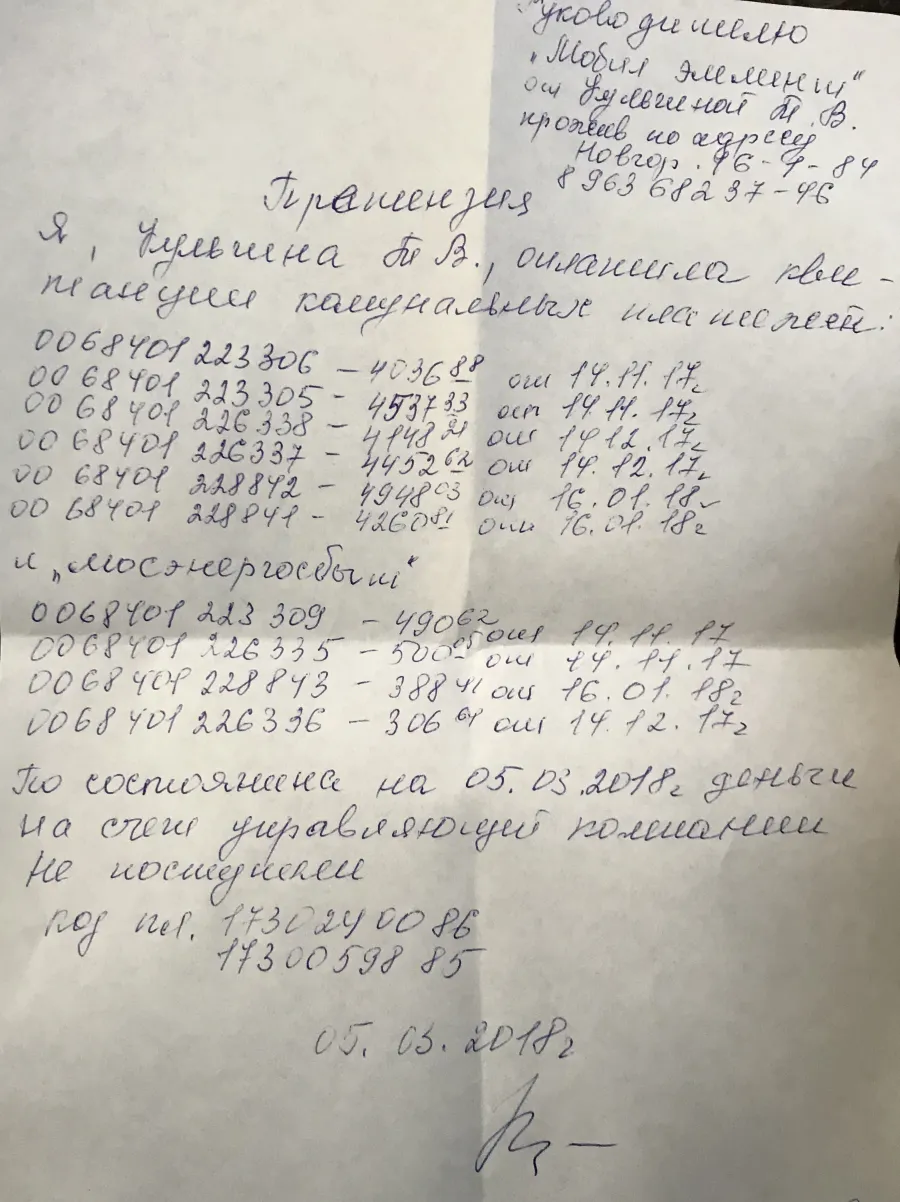 Руководителю
„Мобил Элемент“
от Кульчиной Т. В.
прожив по адресу
Новгор. 16-1-84
8 963 68237-46
Претензия
Я, Кульчина Т В., оплатила кви-
танции комунальных платежей:
0068401 223306 - 4036 88 от 14.11.17г
00 68401 223305 - 4537 33 от 14.11.17г
00 68401 226338 - 4148 21 от 14 12.17г
00 68401 226337 - 4452 62 от 14.12.17г
00 68401 228842 - 4948 03 от 16.01.18г
00 68401 228841 - 4260 81 от 16.01.18г
и „Мосэнергосбыт“
0068401 223 309 - 490 62 от 14.11.17
0068401 226335 - 500 от 14.11.17
0068401 228843 - 388 41 от 16.01.18г
0068401 226336 - 306 64 от 14.12.17г
По состоянина на 05.03.2018г деньги
на счет управляющей компании
не поступили
код пл. 1730240086
1730059885
05.03.2018г